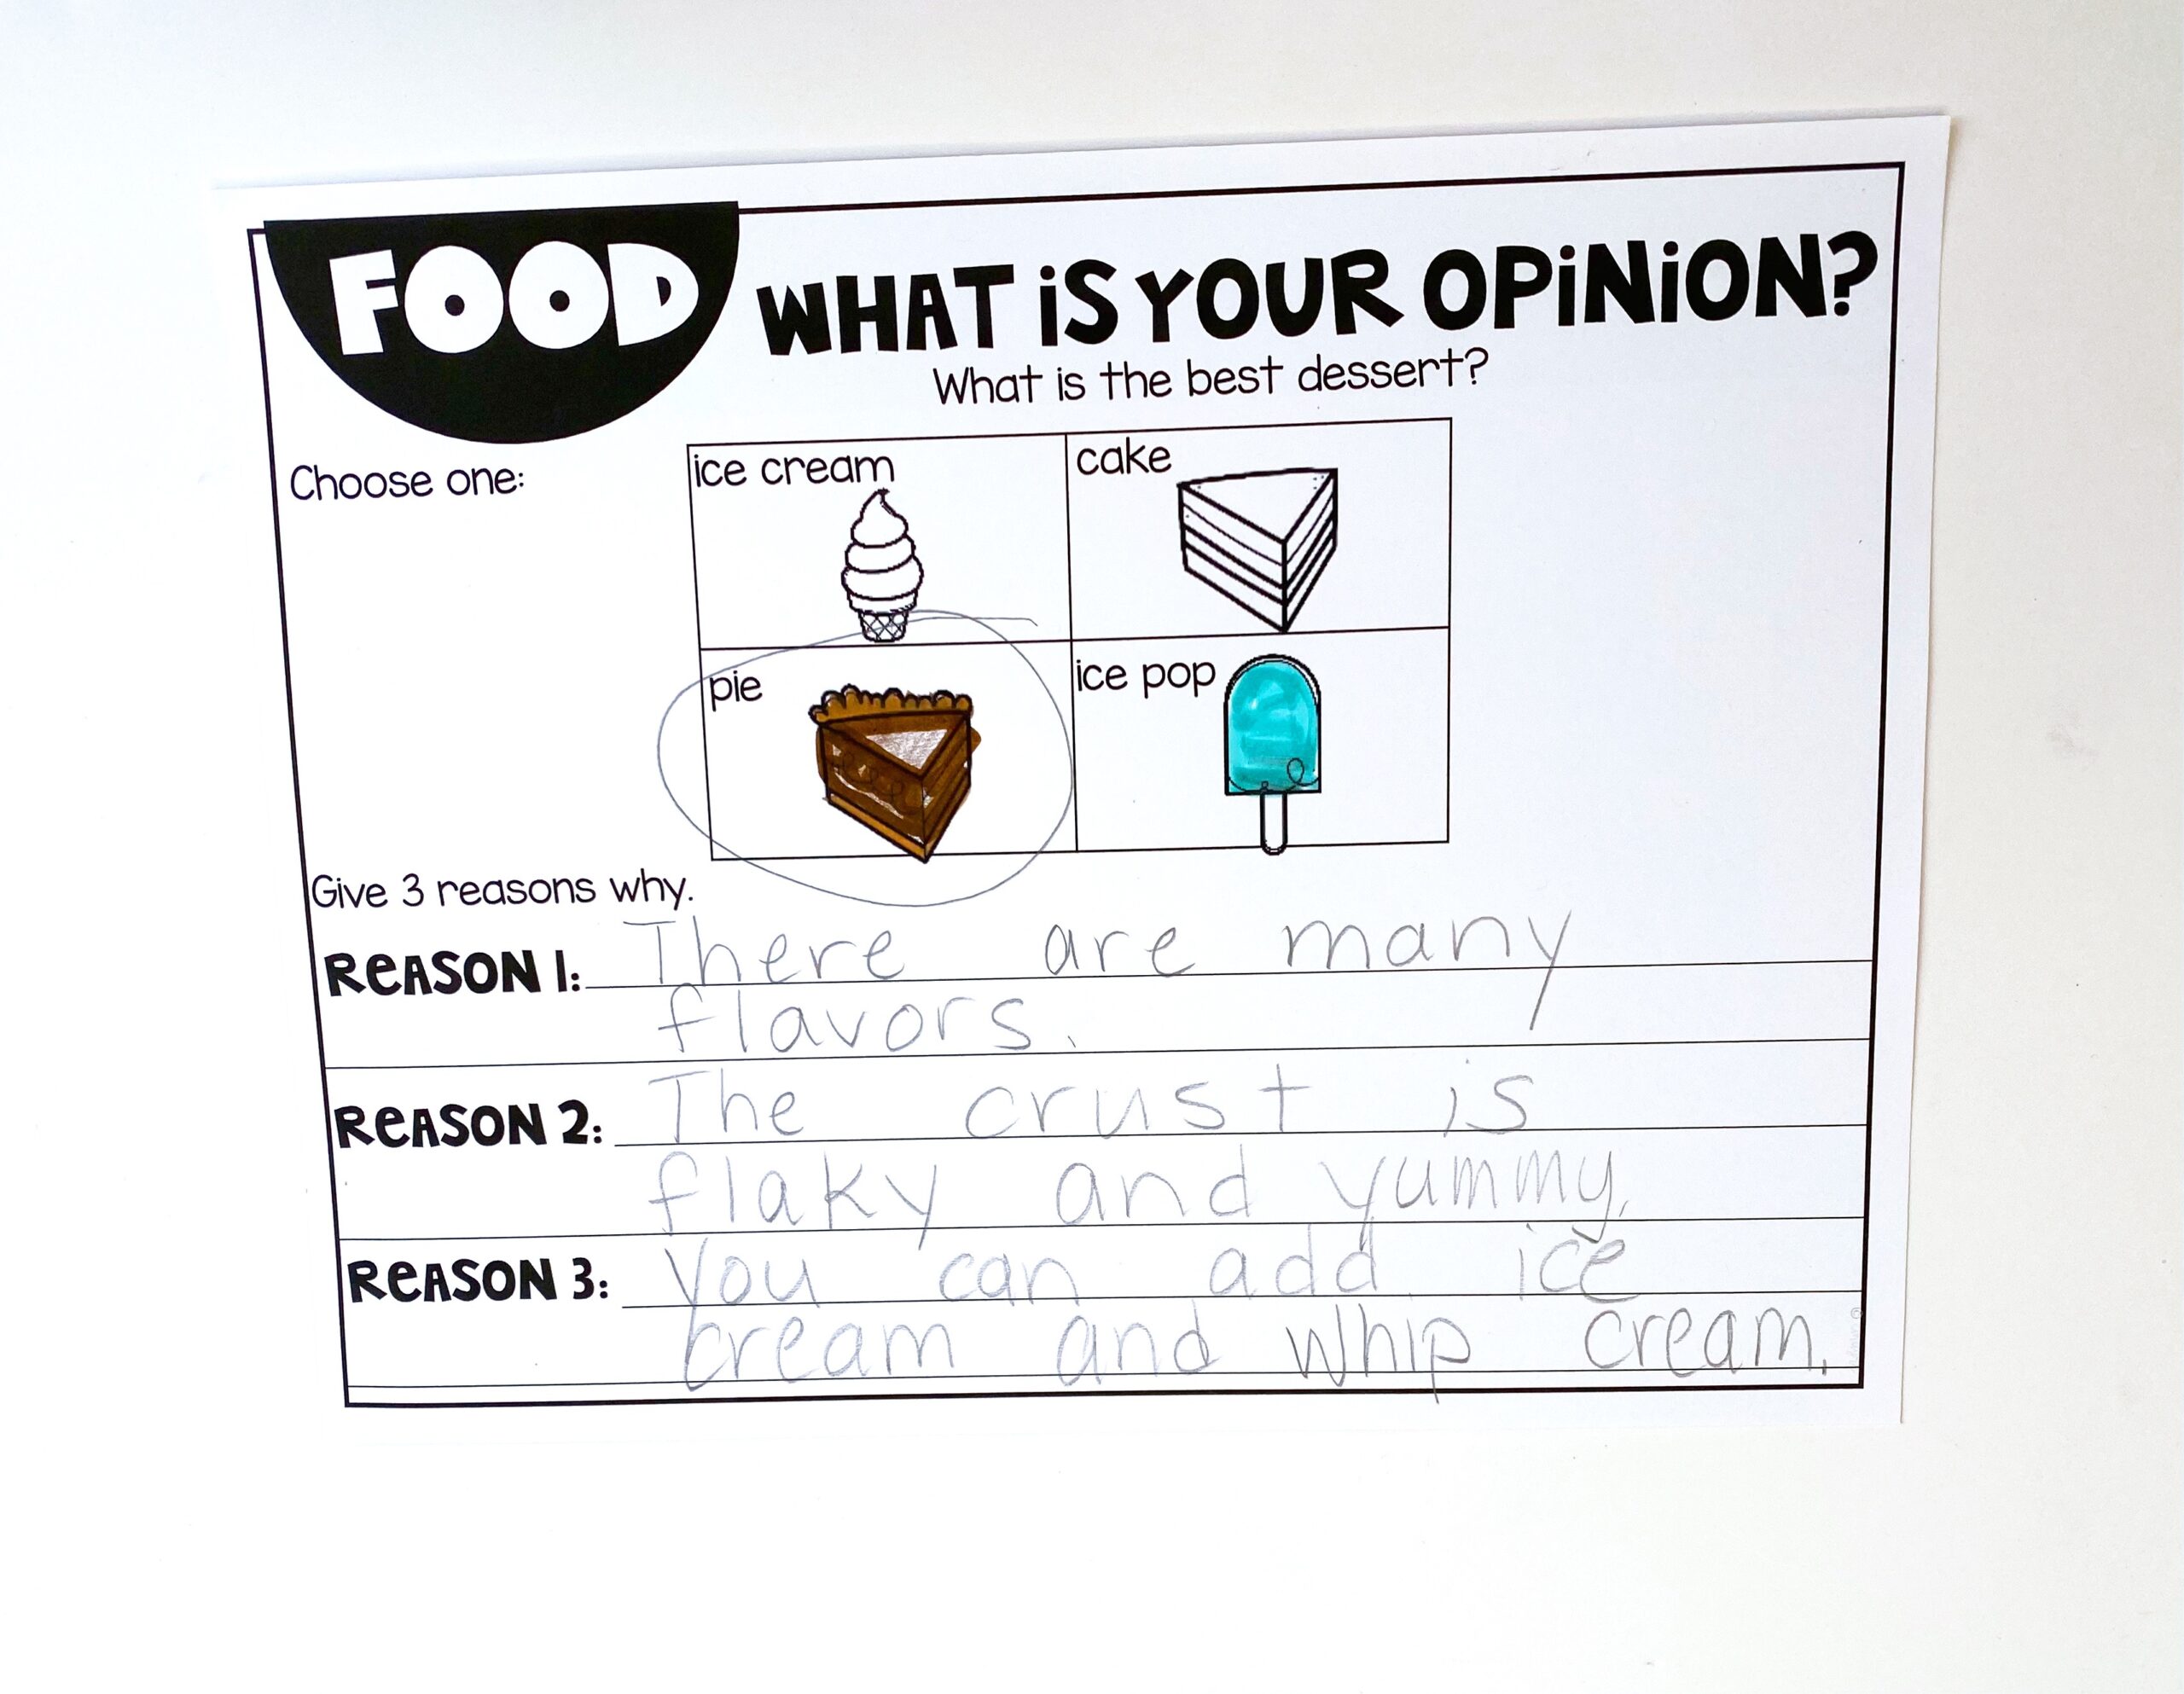 FOOD
WHAT iS YOUR OPiNiON?
What is the best dessert?
Choose one:
ice cream
cake
pie
ice pop
Give 3 reasons why.
REASON 1: There are many
flavors.
REASON 2: The crust is
flaky and yummy.
REASON 3: You can add ice
cream and whip cream.